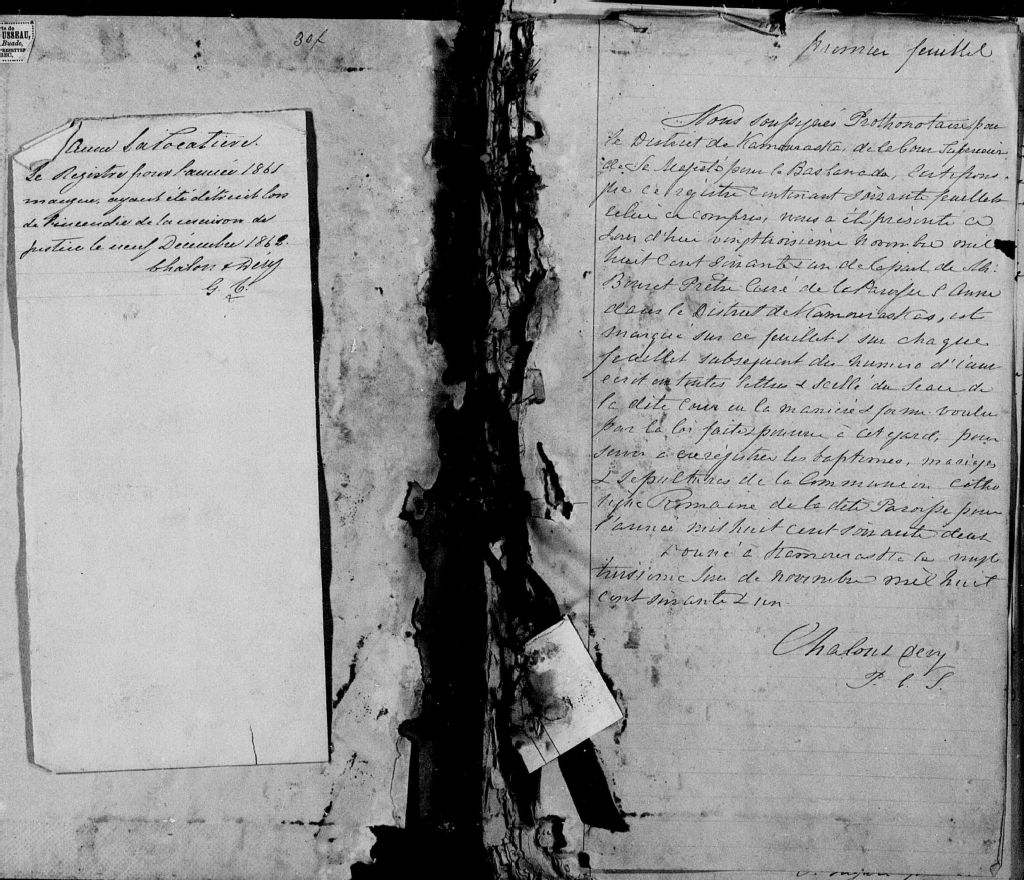 USSEAU,
Buade,
30f
Sanne La Pocatière.
Le Registre pour l'année 1861
manque, ayant été détruit lors
de l'incendie de la maison de
justice le neuf Décembre 1862.
Chalou & Déry
G. C.
premier feuillet
Nous soussignés Prothonotaire pour
le District de Kamouraska, de la Cour Supérieure
de Sa Majesté pour le Bas Canada, Certifions
que ce registre contenant soixante feuillets
celui ci compris, nous a été présenté ce
Jour d'hui vingt troisième novembre mil
huit cent soixante & un de la part de Mr.
Prêtre Curé de la Paroisse S. Anne
dans le District de Kamouraska, est
marqué sur ce feuillet & sur chaque
feuillet subsequent du numero d'icun
ecrit en toutes lettres & scellé du Sceau de
la dite Cour en la manière & forme voulu
par la loi faite & pourvue à cet egard, pour
servir a enregistrer les baptemes, mariages
& sepultures de la Communion Catho
lique Romaine de la dite Paroisse pour
l'année mil huit cent soixante deux
Donné à Kamouraska le vingt
troisieme Jour de novembre mil huit
cent soixante & un
Chalou & Dery
P. C. S.